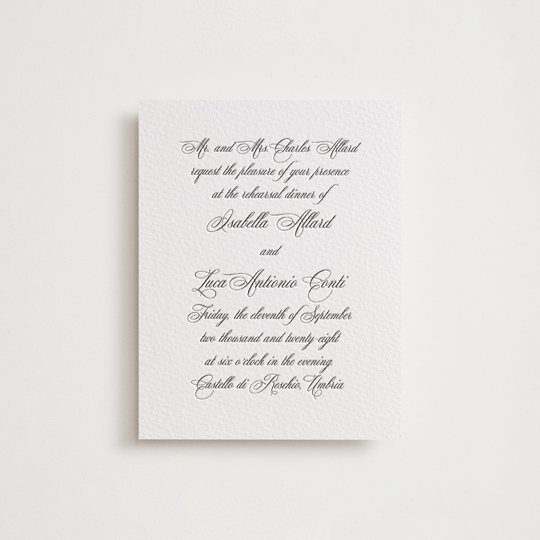 Mr. and Mrs. Charles Allard
request the pleasure of your presence
at the rehearsal dinner of
Isabella Allard
and
Luca Antionio Conti
Friday, the eleventh of September
two thousand and twenty-eight
at six o'clock in the evening.
Castello di Reschio, Umbria